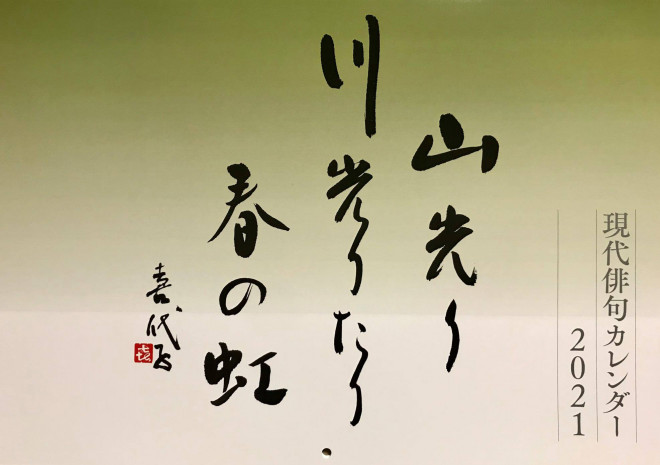 現代俳句カレンダー
2021
山光り
川光りたり
春の虹
喜代子